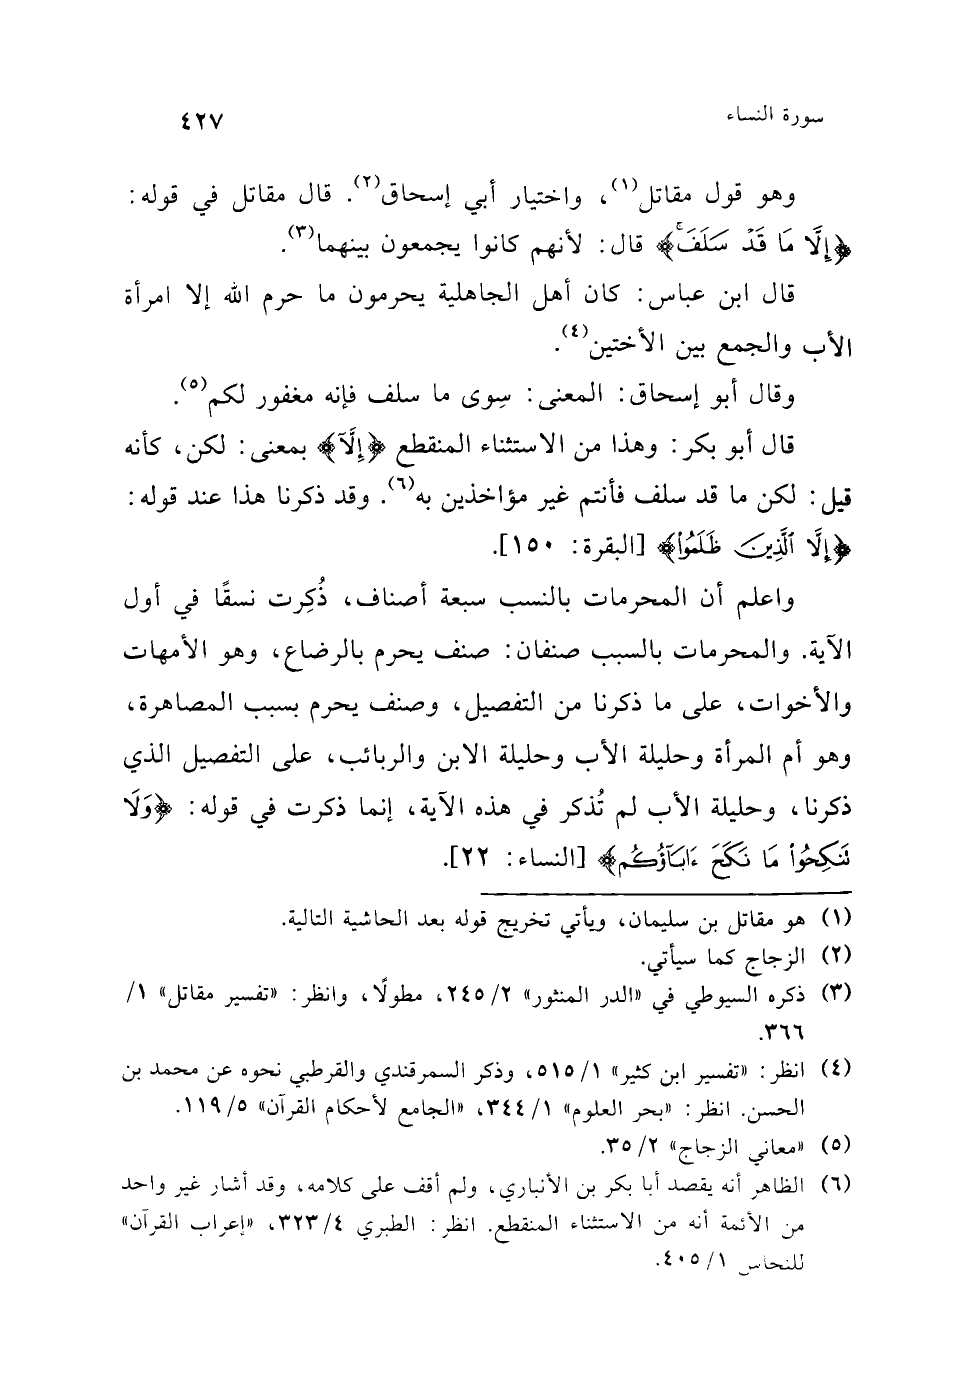 سورة النساء ٤٢٧
وهو قول مقاتل(١)، واختيار أبي إسحاق(٢). قال مقاتل في قوله:
﴿إِلَّا مَا قَدْ سَلَفَ ۚ﴾ قال: لأنهم كانوا يجمعون بينهما(٣).
قال ابن عباس: كان أهل الجاهلية يحرمون ما حرم الله إلا امرأة
الأب والجمع بين الأختين(٤).
وقال أبو إسحاق: المعنى: سِوى ما سلف فإنه مغفور لكم(٥).
قال أبو بكر: وهذا من الاستثناء المنقطع ﴿إِلَّا﴾ بمعنى: لكن، كأنه
قيل: لكن ما قد سلف فأنتم غير مؤاخذين به(٦). وقد ذكرنا هذا عند قوله:
﴿إِلَّا ٱلَّذِينَ ظَلَمُوا۟﴾ [البقرة: ١٥٠].
واعلم أن المحرمات بالنسب سبعة أصناف، ذُكِرت نسقًا في أول
الآية. والمحرمات بالسبب صنفان: صنف يحرم بالرضاع، وهو الأمهات
والأخوات، على ما ذكرنا من التفصيل، وصنف يحرم بسبب المصاهرة،
وهو أم المرأة وحليلة الأب وحليلة الابن والربائب، على التفصيل الذي
ذكرنا، وحليلة الأب لم تُذكر في هذه الآية، إنما ذكرت في قوله: ﴿وَلَا
تَنكِحُوا۟ مَا نَكَحَ ءَابَآؤُكُم﴾ [النساء: ٢٢].
(١) هو مقاتل بن سليمان، ويأتي تخريج قوله بعد الحاشية التالية.
(٢) الزجاج كما سيأتي.
(٣) ذكره السيوطي في «الدر المنثور» ٢/ ٢٤٥، مطولًا، وانظر: «تفسير مقاتل» ١/
٣٦٦.
(٤) انظر: «تفسير ابن كثير» ١/ ٥١٥، وذكر السمرقندي والقرطبي نحوه عن محمد بن
الحسن. انظر: «بحر العلوم» ١/ ٣٤٤، «الجامع لأحكام القرآن» ٥/ ١١٩.
(٥) «معاني الزجاج» ٢/ ٣٥.
(٦) الظاهر أنه يقصد أبا بكر بن الأنباري، ولم أقف على كلامه، وقد أشار غير واحد
من الأئمة أنه من الاستثناء المنقطع. انظر: الطبري ٤/ ٣٢٣، «إعراب القرآن»
للنحاس ١/ ٤٠٥.